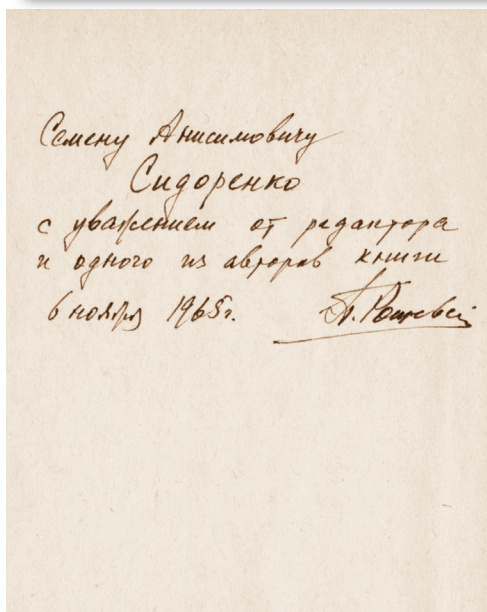 Семену Анисимовичу
Сидоренко
с уважением от редактора
и одного из авторов книги
6 ноября 1965г. П. Рощевский